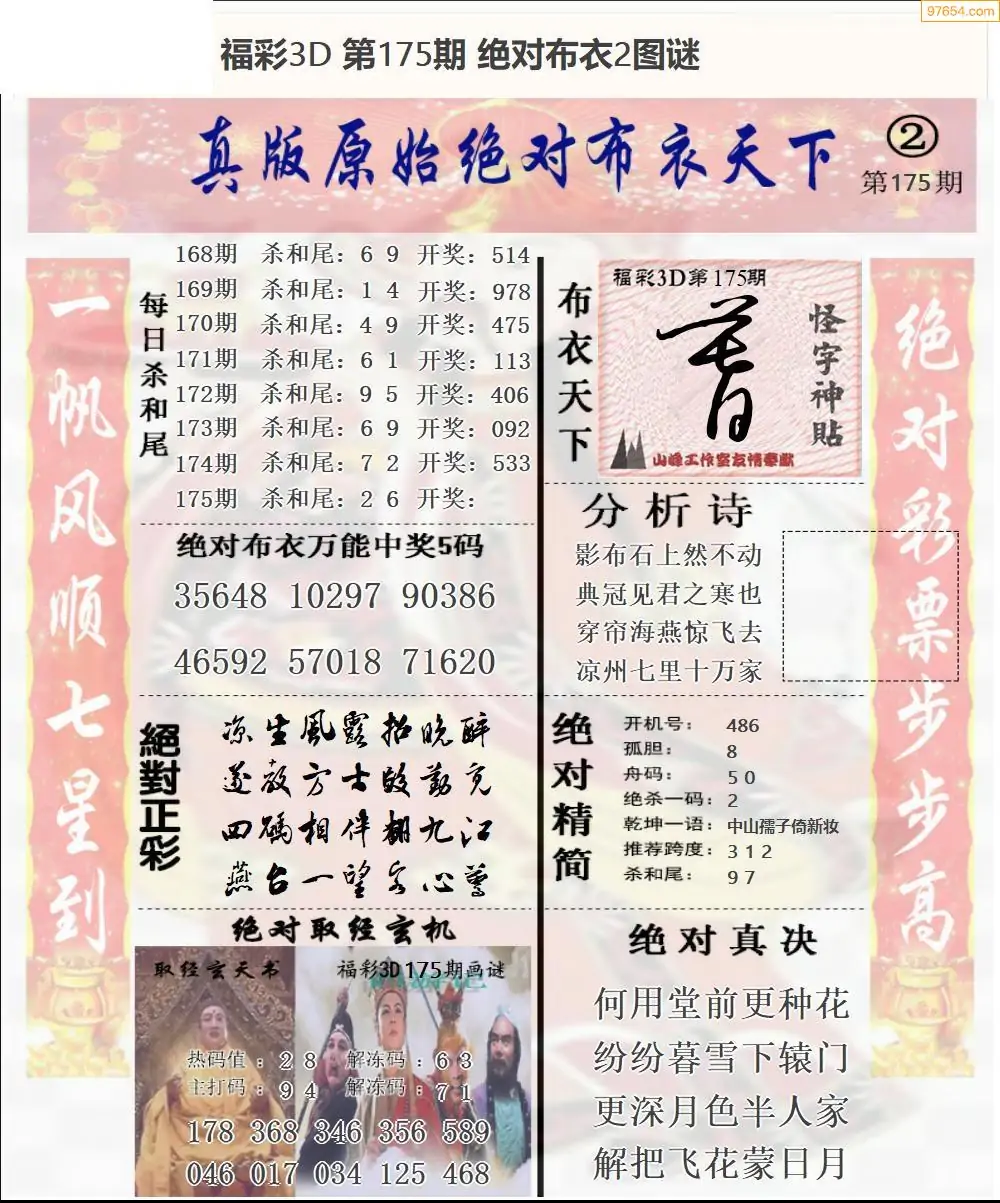 97654.com
福彩3D 第175期 绝对布衣2图谜
真版原始绝对布衣天下
②
第175期
一帆风顺七星到
每日杀和尾
168期 杀和尾：6 9 开奖：514
169期 杀和尾：1 4 开奖：978
170期 杀和尾：4 9 开奖：475
171期 杀和尾：6 1 开奖：113
172期 杀和尾：9 5 开奖：406
173期 杀和尾：6 9 开奖：092
174期 杀和尾：7 2 开奖：533
175期 杀和尾：2 6 开奖：
绝对布衣万能中奖5码
35648 10297 90386
46592 57018 71620
絕對正彩
凉生風露招晚醉
遂教方士殷勤克
四碼相伴翻九江
燕台一望客心驚
绝对取经玄机
取经玄天书
福彩3D175期画谜
热码值：2 8 解冻码：6 3
主打码：9 4 解冻码：7 1
178 368 346 356 589
046 017 034 125 468
布衣天下
福彩3D第175期
怪字神貼
山峰工作室友情奉献
分析诗
影布石上然不动
典冠见君之寒也
穿帘海燕惊飞去
凉州七里十万家
绝对精简
开机号： 486
孤胆： 8
舟码： 5 0
绝杀一码：2
乾坤一语：中山孺子倚新妆
推荐跨度：3 1 2
杀和尾： 9 7
绝对真决
何用堂前更种花
纷纷暮雪下辕门
更深月色半人家
解把飞花蒙日月
绝对彩票步步高